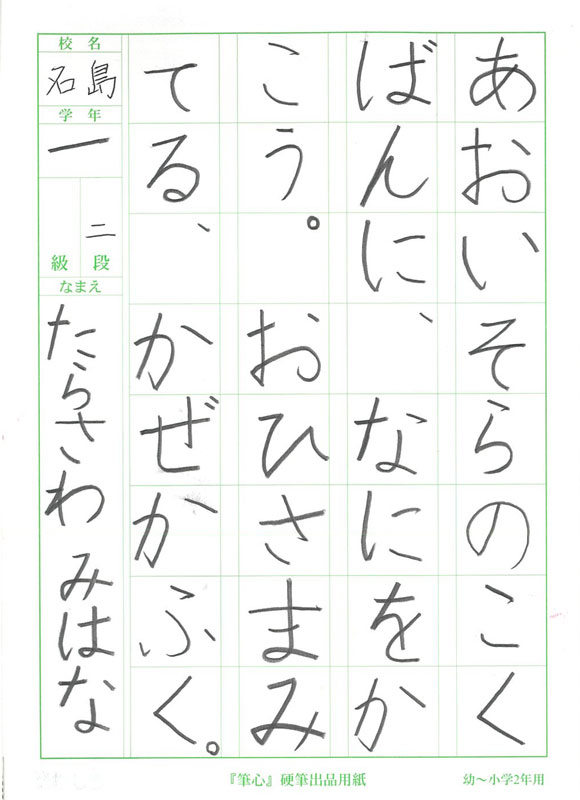 あおいそらのこく
ばんに、なにをか
こう。おひさまみ
てる、かぜかふく。
校名
石島
学年
一
二段
級
なまえ
たらさわ みはな
『筆心』硬筆出品用紙
幼〜小学2年用